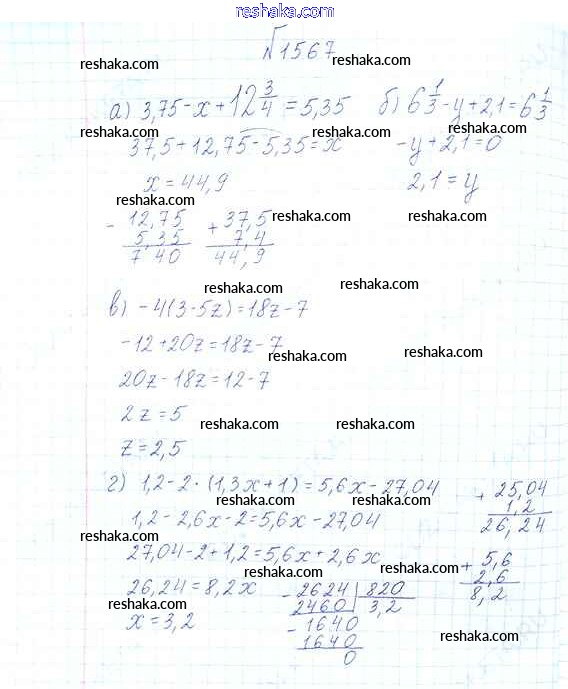 reshaka.com
№1567
reshaka.com reshaka.com
а) 3,75-x+12 3/4=5,35 б) 6 1/3-y+2,1=6 1/3
reshaka.com reshaka.com reshaka.com
37,5+12,75-5,35=x -y+2,1=0
x=44,9 2,1=y
reshaka.com
- 12,75 + 37,5 reshaka.com reshaka.com
5,35 7,4
7 40 44,9
reshaka.com reshaka.com
в) -4(3-5z)=18z-7
-12+20z=18z-7
reshaka.com reshaka.com
20z-18z=12-7
2z=5 reshaka.com reshaka.com
z=2,5
г) 1,2-2·(1,3x+1)=5,6x-27,04 + 25,04
reshaka.com reshaka.com 1,2
1,2-2,6x-2=5,6x-27,04 26,24
reshaka.com
27,04-2+1,2=5,6x+2,6x + 5,6
reshaka.com reshaka.com 2,6
26,24=8,2x - 2624 820 8,2
reshaka.com 2460 3,2
x=3,2 - 1640
1640 reshaka.com
0